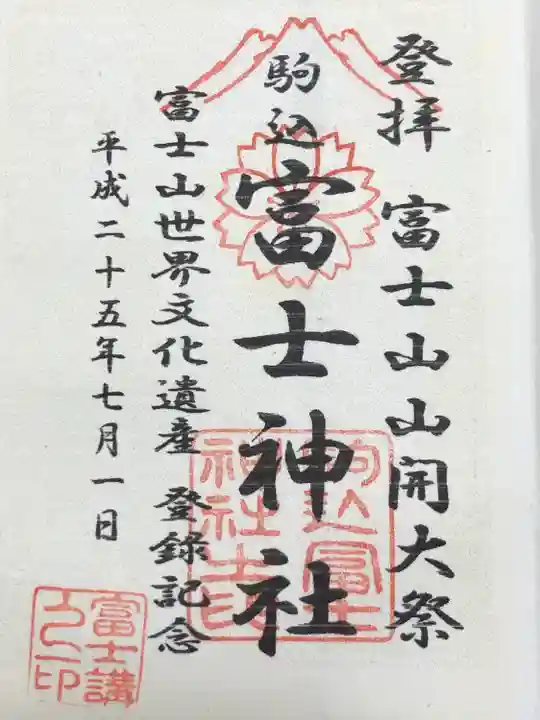 登拝 富士山山開大祭
駒込 富士神社
富士山世界文化遺産 登録記念
平成二十五年七月一日
駒込富士
神社之印
富士講